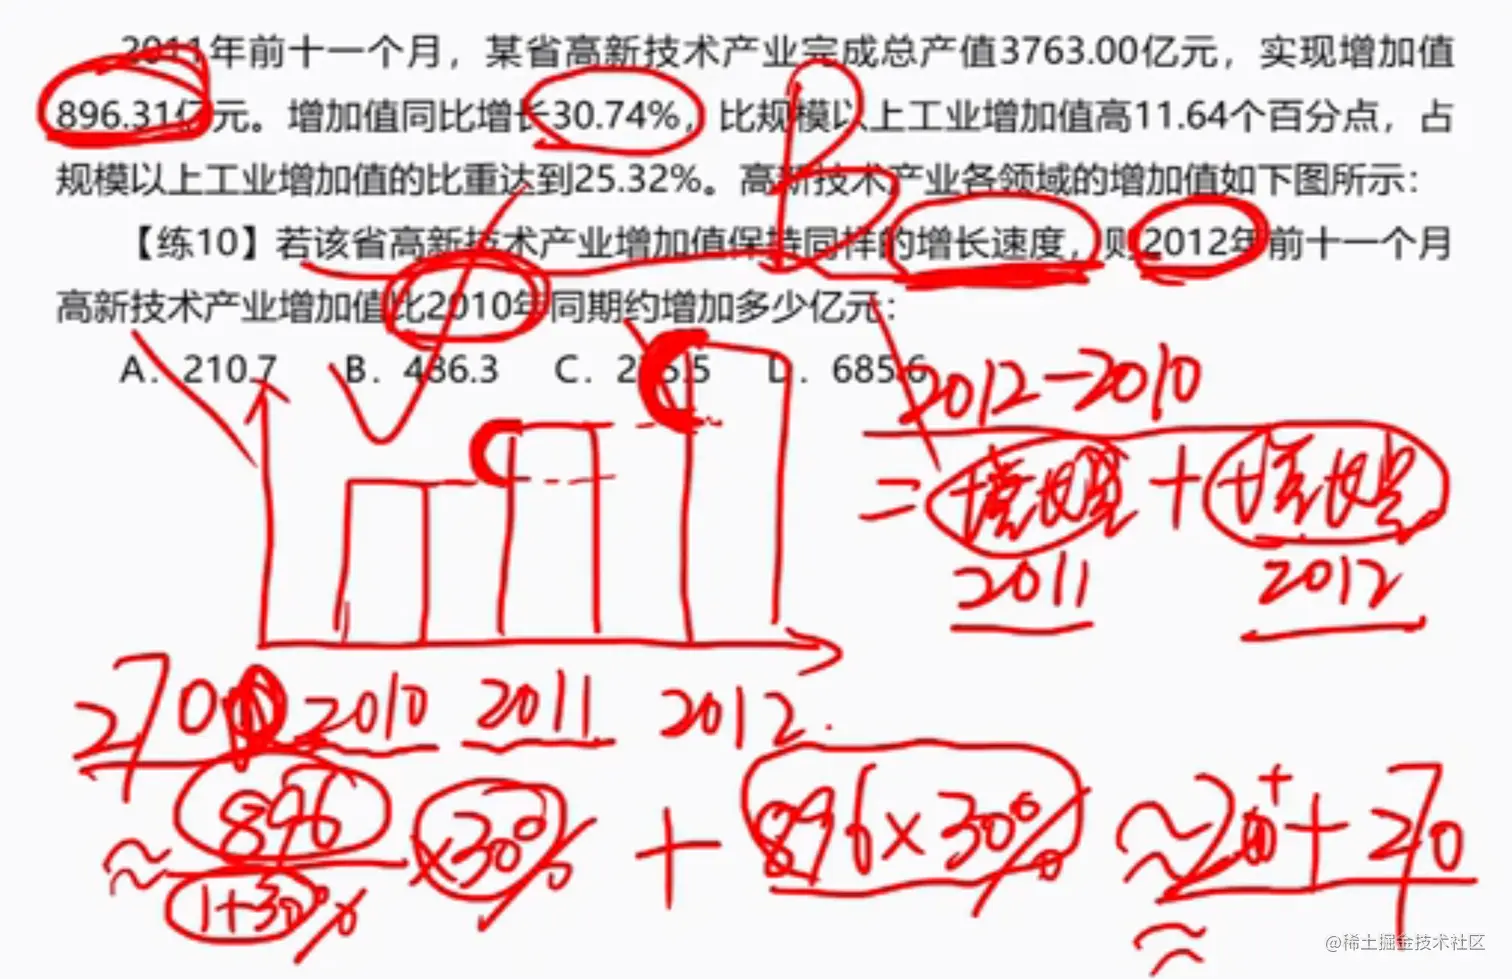 2011年前十一个月，某省高新技术产业完成总产值3763.00亿元，实现增加值
896.31亿元。增加值同比增长30.74%，比规模以上工业增加值高11.64个百分点，占
规模以上工业增加值的比重达到25.32%。高新技术产业各领域的增加值如下图所示：
【练10】若该省高新技术产业增加值保持同样的增长速度，则2012年前十一个月
高新技术产业增加值比2010年同期约增加多少亿元：
A. 210.7 B. 486.3 C. 275.5 D. 685.6
B
2012-2010
=增长量+增长量
2011 2012
270 2010 2011 2012
≈896/1+30% ×30% + 896×30% ≈20+ + 270
≈
@稀土掘金技术社区